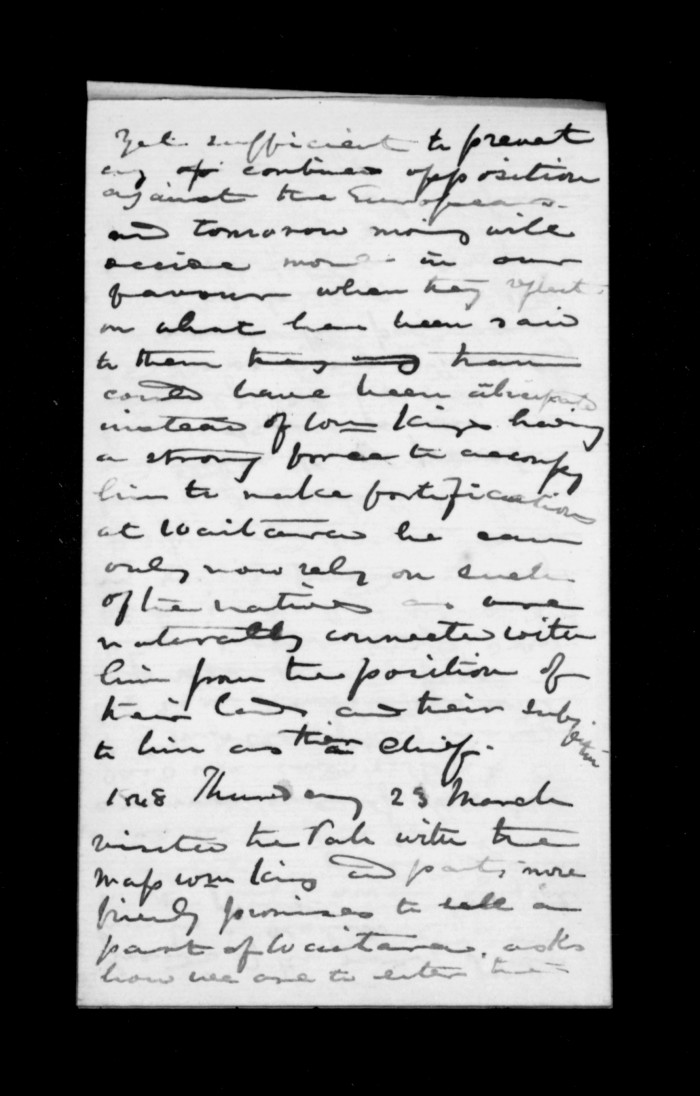 Yet sufficient to prevent
any of continued opposition
against the Europeans.
and tomorrow morng will
decide more in our
favour when they reflect
on what has been said
to them they and have
could have been
instead of Wm King having
a strong force to accompy
him to make fortifications
at Waitara he can
only now rely on such
of the natives as are
naturally connected with
him from the position of
their lands and their subjection
to him as their Chief.
1848 Thursday 23 March
visited the Pah with the
map Wm King and party more
friendly promises to sell a
part of Waitara. asks
how we are to enter the